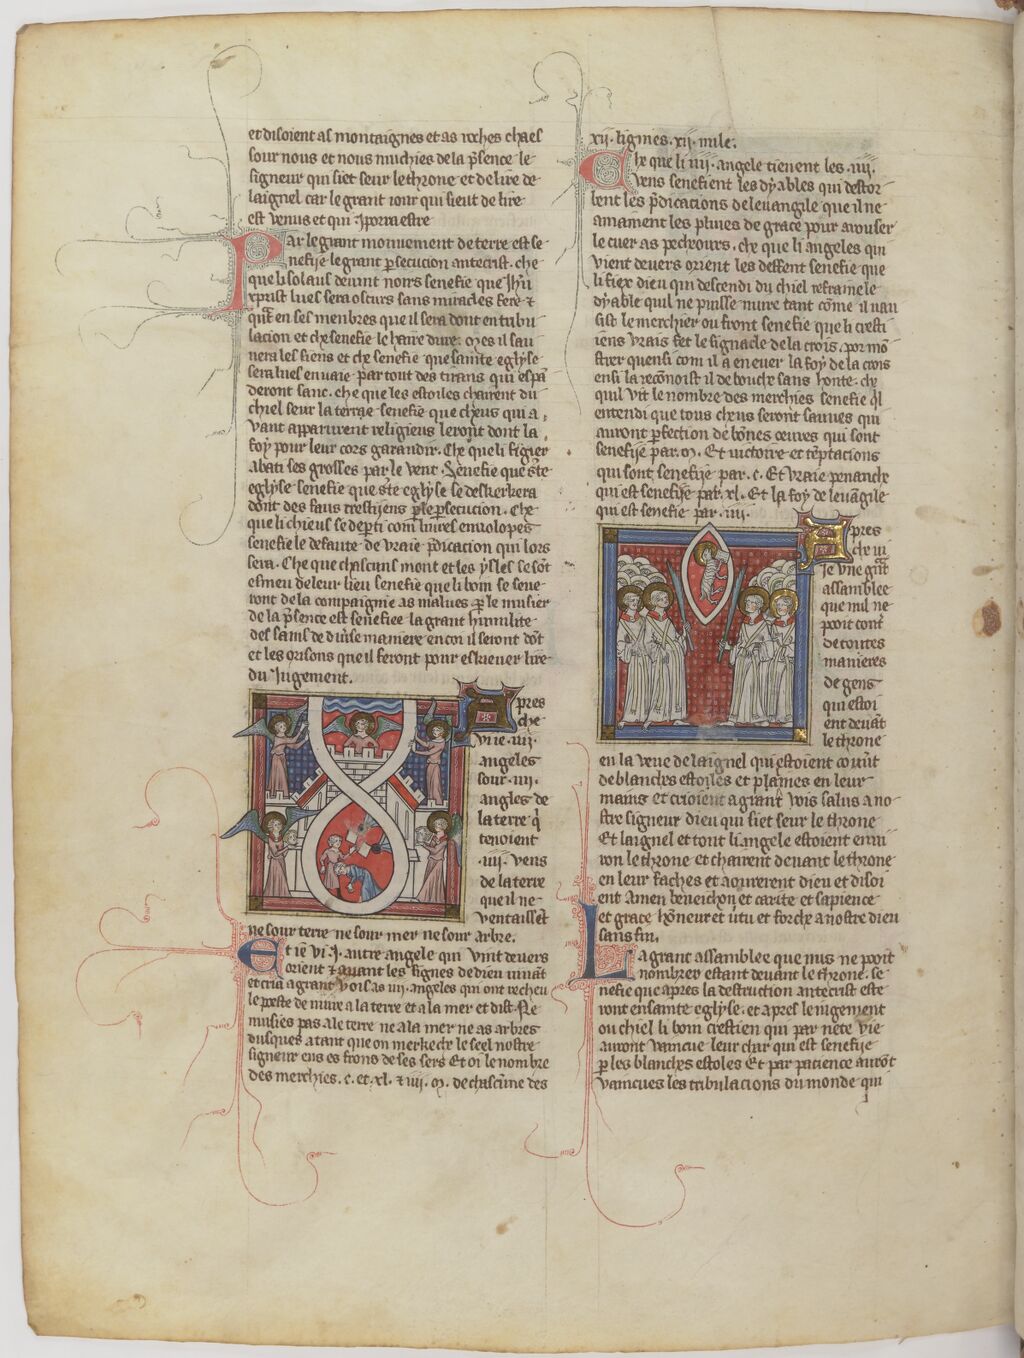 et disoient as montaignes et as roches chaes
sour nous et nous muchies de la p̃sence le
signeur qui siet seur le throne et de lire de
laignel car le grant iour qui sient de lire
est venus et qui porra estre
Par le grant mouuement de terre est se
nefije le grant ꝑsecucion antecrist. che
que li solaus deuint noirs senefie que ihũ
xp̃rist lues sera oscurs sans miracles fere ⁊
qñt en ses menbres que il sera dont en tribu
lacion et che senefie le haire dure. mes il sau
uera les siens et che senefie que sainte eglyse
sera lues enuaie par tout des tirans qui espã
deront sanc. che que les estoiles chairent du
chiel seur la terrae senefie que cheus qui a
vant apparurent religieus leront dont la
foy pour leur cors garandir. Che que li figier
abati ses grosses par le vent. Senefie que ste
eglyse senefie que ste eglyse se deskerkera
dont des faus crestijens ꝑ le ꝑsecucion. Che
que li chieus se deꝑti com liures enuolopes
senefie le defaute de vraie p̃dicacion qui lors
sera. Che que chascuns mont et les ysles se sõt
esmeu de leur lieu senefie que li boin se seue
ront de la compaignie as malues ꝑ le musier
de la p̃sence est senefiee la grant humilite
des sains de diu̾se maniere en coi il seront dõt
et les orisons que il feront pour eskieuer lire
du iugement.
Apres
che
vi ie .iiij.
angeles
sour .iiij.
angles de
la terre q̃
tenoient
.iiij. vens
de la terre
que il ne
ventaissẽt
ne sour terre ne sour mer ne sour arbre.
Et ie vi .j. autre angele qui vint deuers
orient ⁊ auant les signes de dieu viuãt
et cria a grant vois as iiij. angeles qui ont recheu
le poeste de nuire a la terre et a la mer et dist. Ne
nuisies pas a le terre ne a la mer ne as arbres
dusques a tant que on merkeche le seel nostre
signeur ens es frons de ses sers Et oi le nombre
des merchies. c. et .xl. ⁊ iiij. m. de chascune des
xij. lignies. xij. mile.
Che que li iiij. angele tienent les .iiij.
vens senefient les dyables qui destor
bent les p̃dicacions de leuangile que il ne
amainent les pluies de grace pour arouser
le cuer as pecheours. che que li angeles qui
vient deuers orient les deffent senefie que
li fiex dieu qui descendi du chiel reframe le
dyable quil ne puisse nuire tant cõme il uau
sist le merchier ou front senefie que li cresti
iens vrais fet le signacle de la crois. por mõ
strer quensi com il a en cuer la foy de la crois
ensi la recõnoist il de bouche sans honte. che
quil vit le nombre des merchies senefie q̃l
entendi que tous cheus seront sauues qui
auront ꝑfection de bõnes œuures qui sont
senefije par .m. Et victoire et tẽptacions
qui sont senefije par .c. Et vraie penanche
qui est senefije par .xl. Et la foy de leuãgile
qui est senefie par .iiij.
Apres
che vi
ie vne grãt
assamblee
que nul ne
pooit cont̾
de toutes
manieres
de gens
qui estoi
ent deuãt
le throne
en la veue de laignel qui estoient cou̾ut
de blanches estoiles et plaimes en leur
mains et crioient a grant vois salus a no
stre signeur dieu qui siet seur le throne
Et laignel et tout li angele estoient enui
ron le throne et chairent deuant le throne
en leur faches et aourerent dieu et disoi
ent amen beneichon et carite et sapience
et grace honeur et u̾tu et forche a nostre dieu
sans fin.
La grant assamblee que nus ne pooit
nombrer estant deuant le throne. se
nefie que apres la destruction antecrist este
ront en sainte eglyse. et apres le iugement
ou chiel li boin crestien qui par nete vie
auront vaincue leur char qui est senefije
ꝑ les blanches estoles Et par patience aurõt
vaincues les tribulacions du monde qui